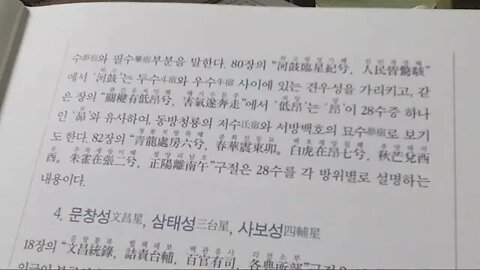 수參宿와 필수畢宿부분을 말한다. 80장의 “河鼓臨星紀兮, 人民皆驚駭”
에서 ‘河鼓’는 두수斗宿와 우수牛宿 사이에 있는 견우성을 가리키고, 같
은 장의 “關楗有低昂兮, 害氣遂奔走”에서 ‘低昂’는 ‘昂’이 28수중 하나
인 ‘昴’와 유사하여, 동방청룡의 저수氐宿와 서방백호의 묘수昴宿로 보기
도 한다. 82장의 “靑龍處房六兮, 春華震東卯. 白虎在昴七兮, 秋芒兌西
酉. 朱雀在張二兮, 正陽離南午” 구절은 28수를 각 방위별로 설명하는
내용이다.
4. 문창성文昌星, 삼태성三台星, 사보성四輔星
18장의 “文昌統錄, 詰責台輔, 百官有司, 各典所部” 구절은